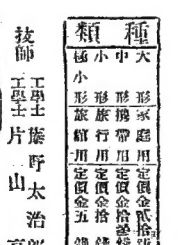 種類
大形家庭用定價金貳拾
中形携帶用定價金拾
小形旅行用定價金拾錢
極小形旅館用定價金五錢
技師
工學士 野太治
工學士 片山